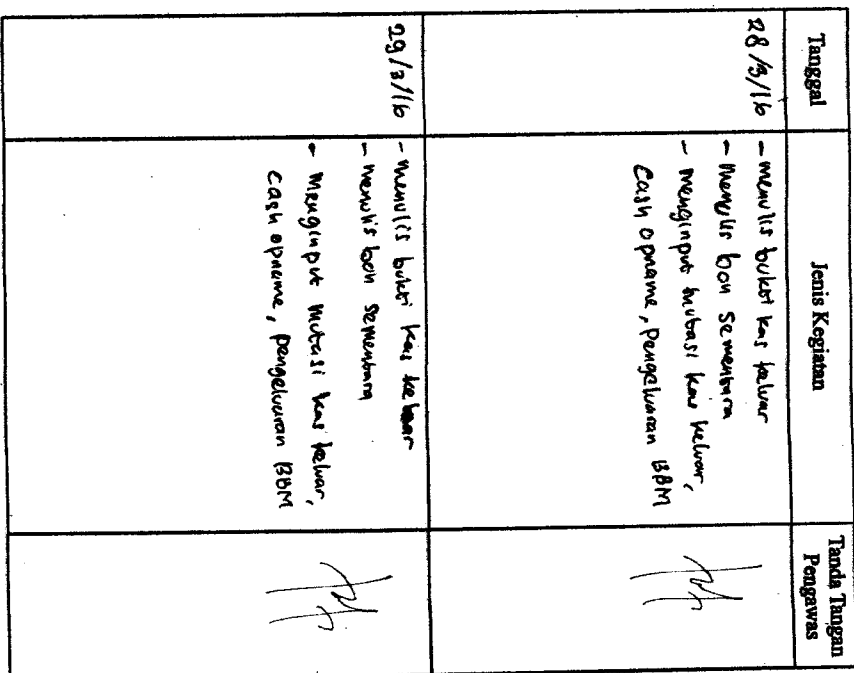 Tanggal
Jenis Kegiatan
Tanda Tangan
Pengawas
28/3/16
- menulis bukti kas keluar
- menulis bon sementara
- menginput mutasi kas keluar,
cash opname, pengeluaran BBM
29/3/16
- menulis bukti kas keluar
- menulis bon sementara
- Menginput mutasi kas keluar,
cash opname, pengeluaran BBM